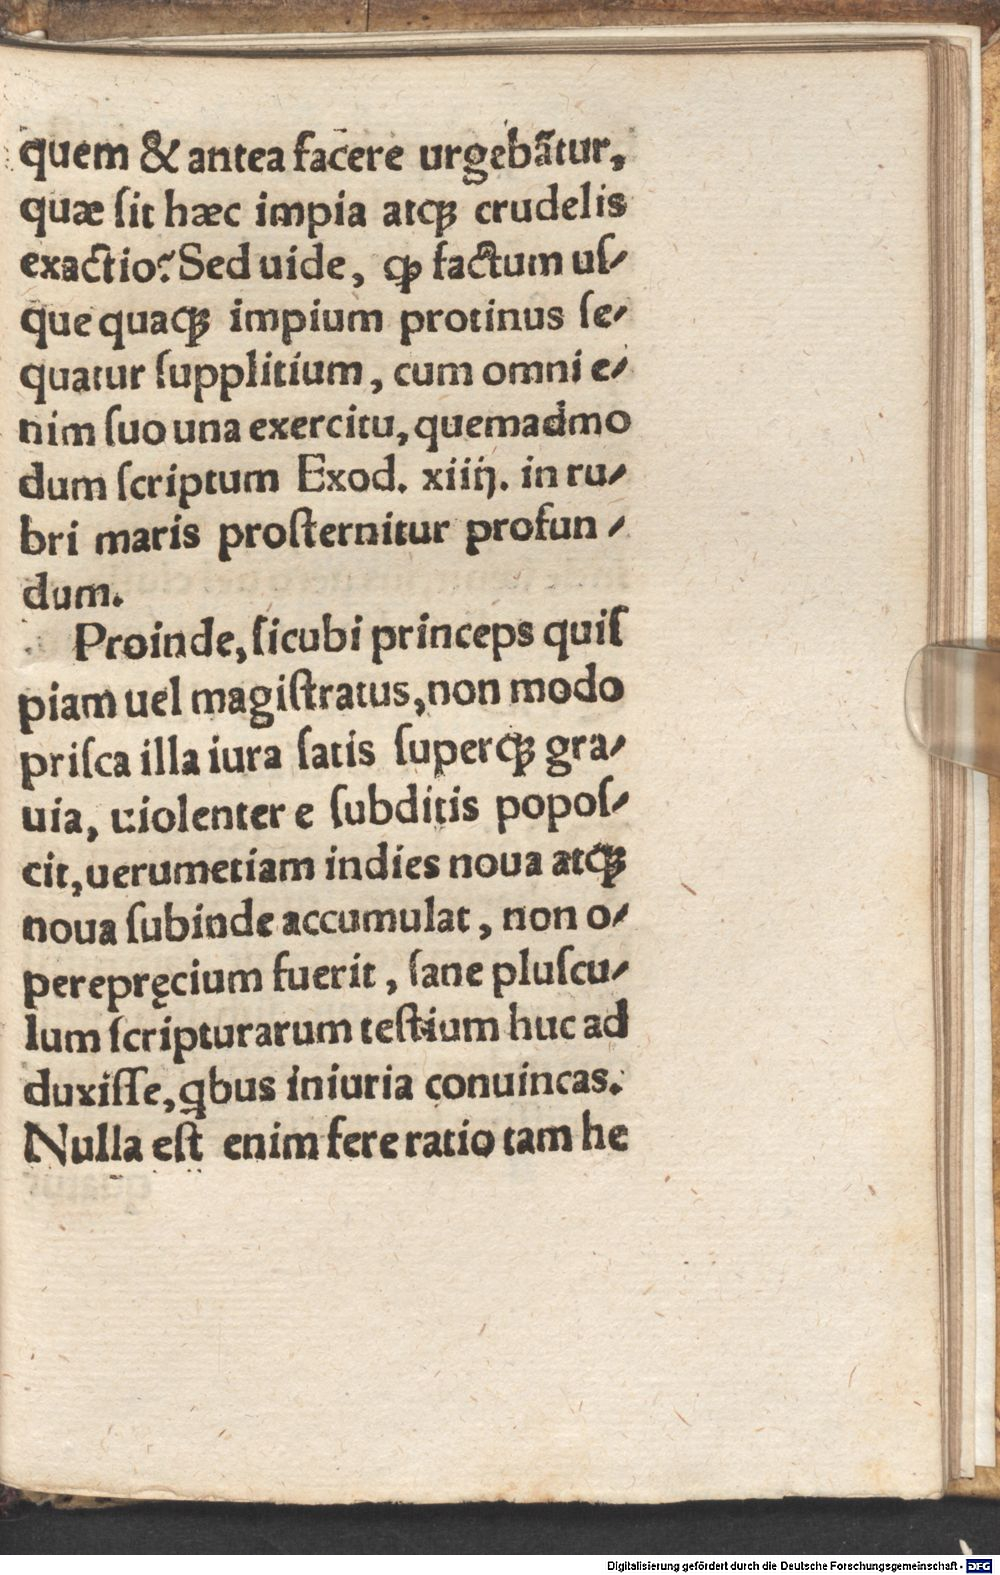 quem & antea facere urgebãtur,
quæ ſit hæc impia atqꝫ crudelis
exactio? Sed uide, ꝙ factum uſ⸗
que quaqꝫ impium protinus ſe⸗
quatur ſupplitium, cum omni e⸗
nim ſuo una exercitu, quemadmo
dum ſcriptum Exod. xiiij. in ru⸗
bri maris proſternitur profun⸗
dum.
Proinde, ſicubi princeps quiſ
piam uel magiſtratus, non modo
priſca illa iura ſatis ſuperqꝫ gra⸗
uia, uiolenter e ſubditis popoſ⸗
cit, uerumetiam indies noua atqꝫ
noua ſubinde accumulat, non o⸗
perepręcium fuerit, ſane pluſcu⸗
lum ſcripturarum teſtium huc ad
duxiſſe, qbus iniuria conuincas.
Nulla eſt enim fere ratio tam he
Digitalisierung gefördert durch die Deutsche Forschungsgemeinschaft - DFG